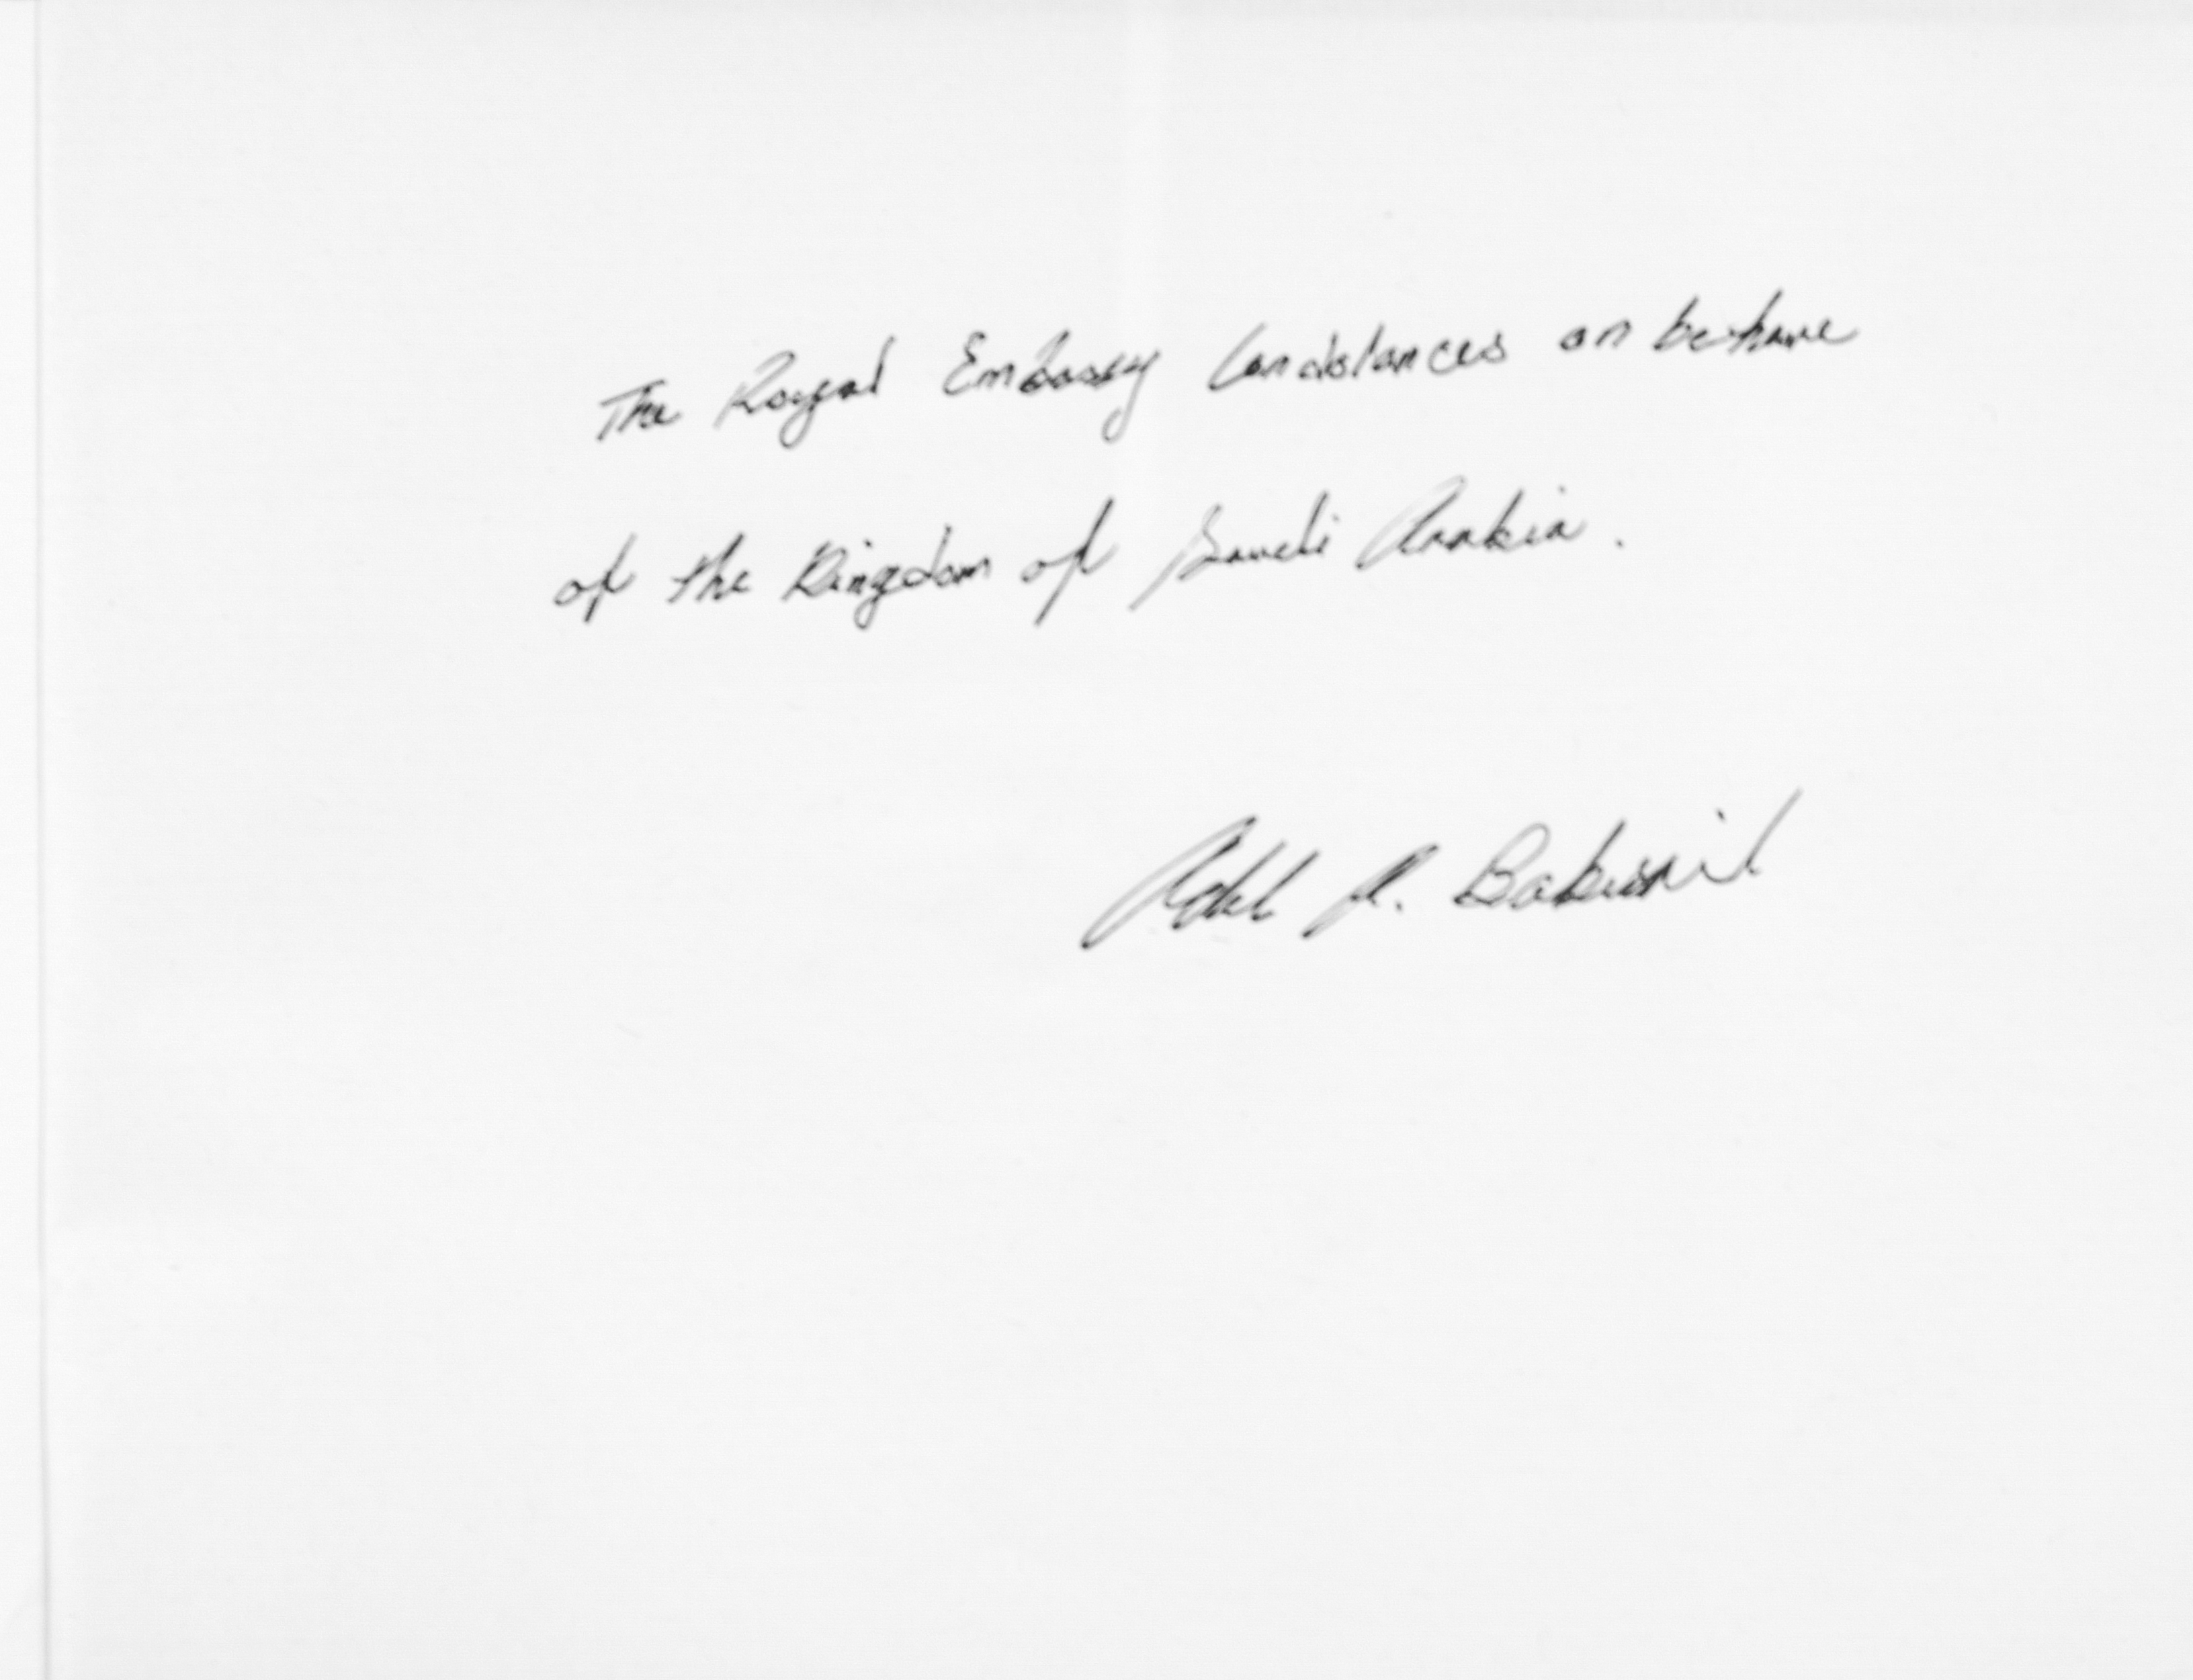 The Royal Embassy Condolances on behave
of the Kingdom of Saudi Arabia.
A.